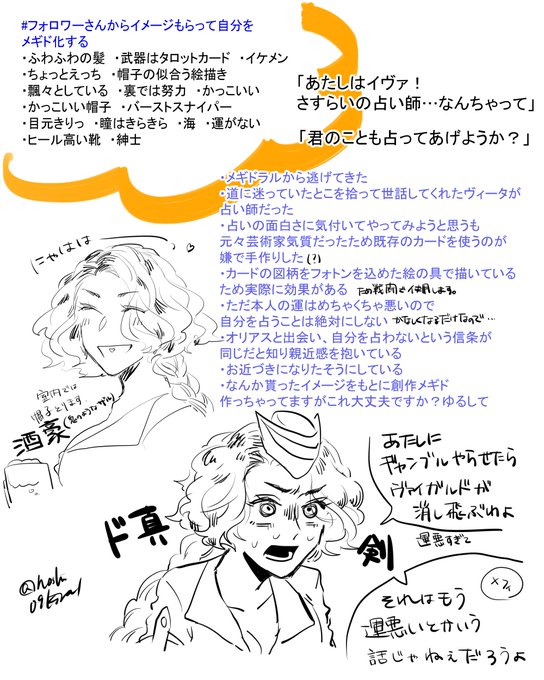 #フォロワーさんからイメージもらって自分を
メギド化する
・ふわふわの髪 ・武器はタロットカード ・イケメン
・ちょっとえっち ・帽子の似合う絵描き
・飄々としている ・裏では努力 ・かっこいい
・かっこいい帽子 ・バーストスナイパー
・目元きりっ ・瞳はきらきら ・海 ・運がない
・ヒール高い靴 ・紳士
「あたしはイヴァ！
さすらいの占い師…なんちゃって」
「君のことも占ってあげようか？」
・メギドラルから逃げてきた
・道に迷っていたとこを拾って世話してくれたヴィータが
占い師だった
・占いの面白さに気付いてやってみようと思うも
元々芸術家気質だったため既存のカードを使うのが
嫌で手作りした(?)
・カードの図柄をフォトンを込めた絵の具で描いている
ため実際に効果がある ため戦闘で使用します。
・ただ本人の運はめちゃくちゃ悪いので
自分を占うことは絶対にしない かなしくなるだけなので…
・オリアスと出会い、自分を占わないという信条が
同じだと知り親近感を抱いている
・お近づきになりたそうにしている
・なんか貰ったイメージをもとに創作メギド
作っちゃってますがこれ大丈夫ですか？ゆるして
にゃはは
室内では
帽子とります
酒豪
ド真
剣
あたしに
ギャンブルやらせたら
ヴァイガルドが
消し飛ぶわよ
運悪すぎて
それはもう
運悪いとかいう
話じゃねぇだろうよ